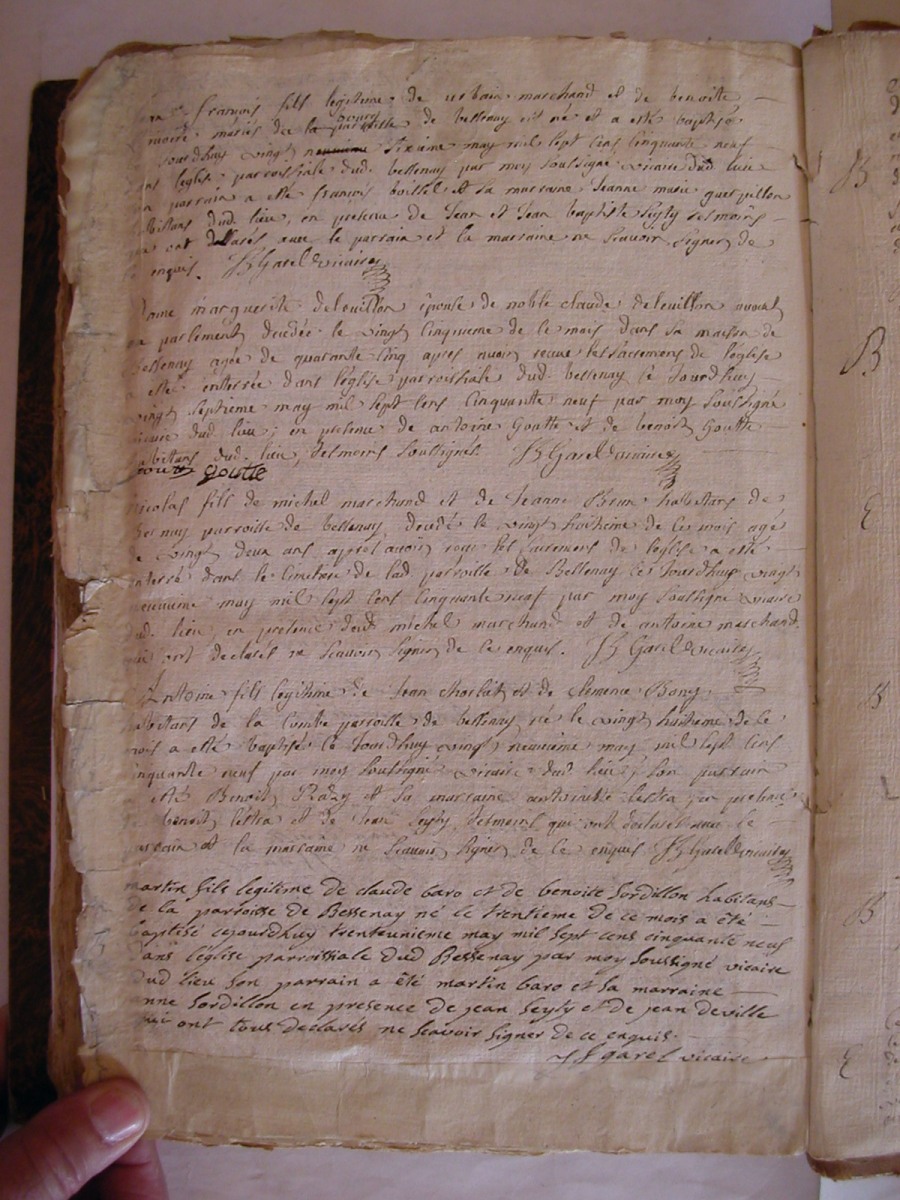 françois fils légitime de urbain marchand et de benoite
mariés de la parroisse de bessenay est né et a esté baptisé
jourdhuy vingt neuvieme sixieme may mil sept cens cinquante neuf
léglise parroissiale dud. bessenay par moy soussigné vicaire dud lieu
parrain a esté françois boissel et sa marraine jeanne marie guerpillon
habitans dud. lieu, en présence de jean et jean baptiste seyty tesmoins
ont declarés avec le parrain et la marraine ne scavoir signer de
enquis. garel vicaire
marguerite delouillon épouse de noble claude delouillon avocat
parlement décédée le vingt cinquieme de ce mois dans sa maison de
Bessenay agée de quarante cinq apres avoir receue les sacremens de léglise
a esté enterrée dans léglise parroissiale dud. bessenay ce jourdhuy
vingt septieme may mil sept cens cinquante neuf par moy soussigné
vicaire dud. lieu, en présence de antoine goutte et de benoit goutte
habitans dud. lieu, tesmoins soussignés. garel vicaire
goutte
Nicolas fils de michel marchand et de jeanne Brun habitans de
parroisse de bessenay, decedé le vingt huitieme de ce mois agé
de vingt deux ans, apprés avoir receu les sacremens de léglise a esté
enterré dans le cimetiere de lad. parroisse de Bessenay ce jourdhuy vingt
neuvieme may mil sept cens cinquante neuf par moy soussigné vicaire
dud. lieu, en présence dud. michel marchand et de antoine marchand.
qui ont declarés ne scavoir signer de ce enquis. garel vicaire
Antoine fils legitime de jean et de clemence Bony
habitans de la Combe parroisse de bessenay né le vingt huitieme de ce
mois a esté baptisé ce jourdhuy vingt neuvieme may mil sept cens
cinquante neuf par moy soussigné vicaire dud. lieu; son parrain
esté Benoit et sa marraine antoinette lestra en présence
benoit lestra et de jean seyty, tesmoins qui ont declarés avec le
parrain et la marraine ne scavoir signer de ce enquis garel vicaire
martin fils legitime de claude baro et de benoite Sordillon habitans
de la parroisse de Bessenay né le trentieme de ce mois a été
baptisé cejourdhuy trenteunieme may mil sept cens cinquante neuf
dans léglise parroissiale dud Bessenay par moy soussigné vicaire
dud lieu son parrain a été martin baro et sa marraine
anne Sordillon en presence de jean seyty et de jean deville
qui ont tous declarés ne scavoir signer de ce enquis.
garel vicaire
B
B
E
B
B
E